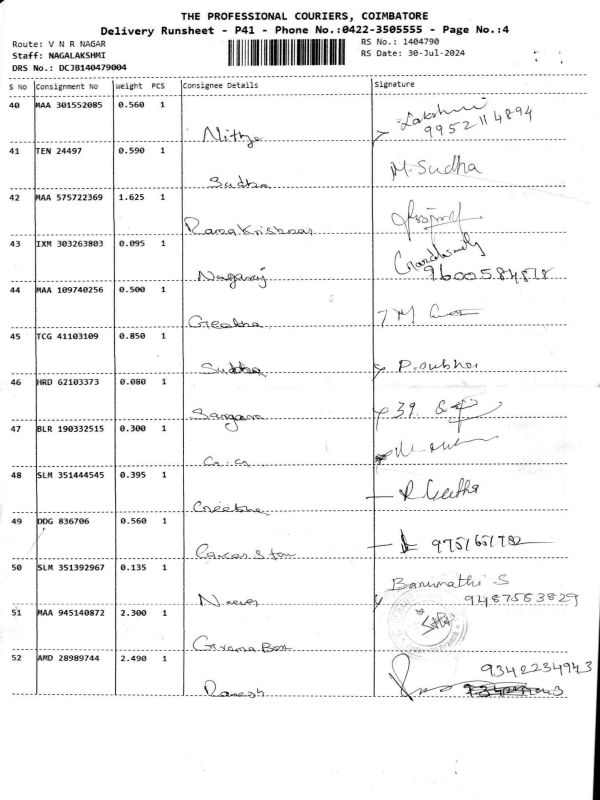 THE PROFESSIONAL COURIERS, COIMBATORE
Delivery Runsheet - P41 - Phone No.:0422-3505555 - Page No.:4
Route: V N R NAGAR RS No.: 1404790
Staff: NAGALAKSHMI RS Date: 30-Jul-2024
DRS No.: DCJB140479004
S No Consignment No Weight PCS Consignee Details Signature
40 MAA 301552085 0.560 1
Nithya Lakshmi
9952114894
41 TEN 24497 0.590 1
Sudha M. Sudha
42 MAA 575722369 1.625 1
Rama Krishnan
43 IXM 303263803 0.095 1
Nagaraj
44 MAA 109740256 0.500 1
Geetha
45 TCG 41103109 0.850 1
Subha P. Subha
46 HRD 62103373 0.080 1
Sangana 39
47 BLR 190332515 0.300 1
48 SLM 351444545 0.395 1
R Geetha
49 DDG 836706 0.560 1
50 SLM 351392967 0.135 1
Banumathi S
9487563829
51 MAA 945140872 2.300 1
Box
52 AMD 28989744 2.490 1
Ramesh 9342234943